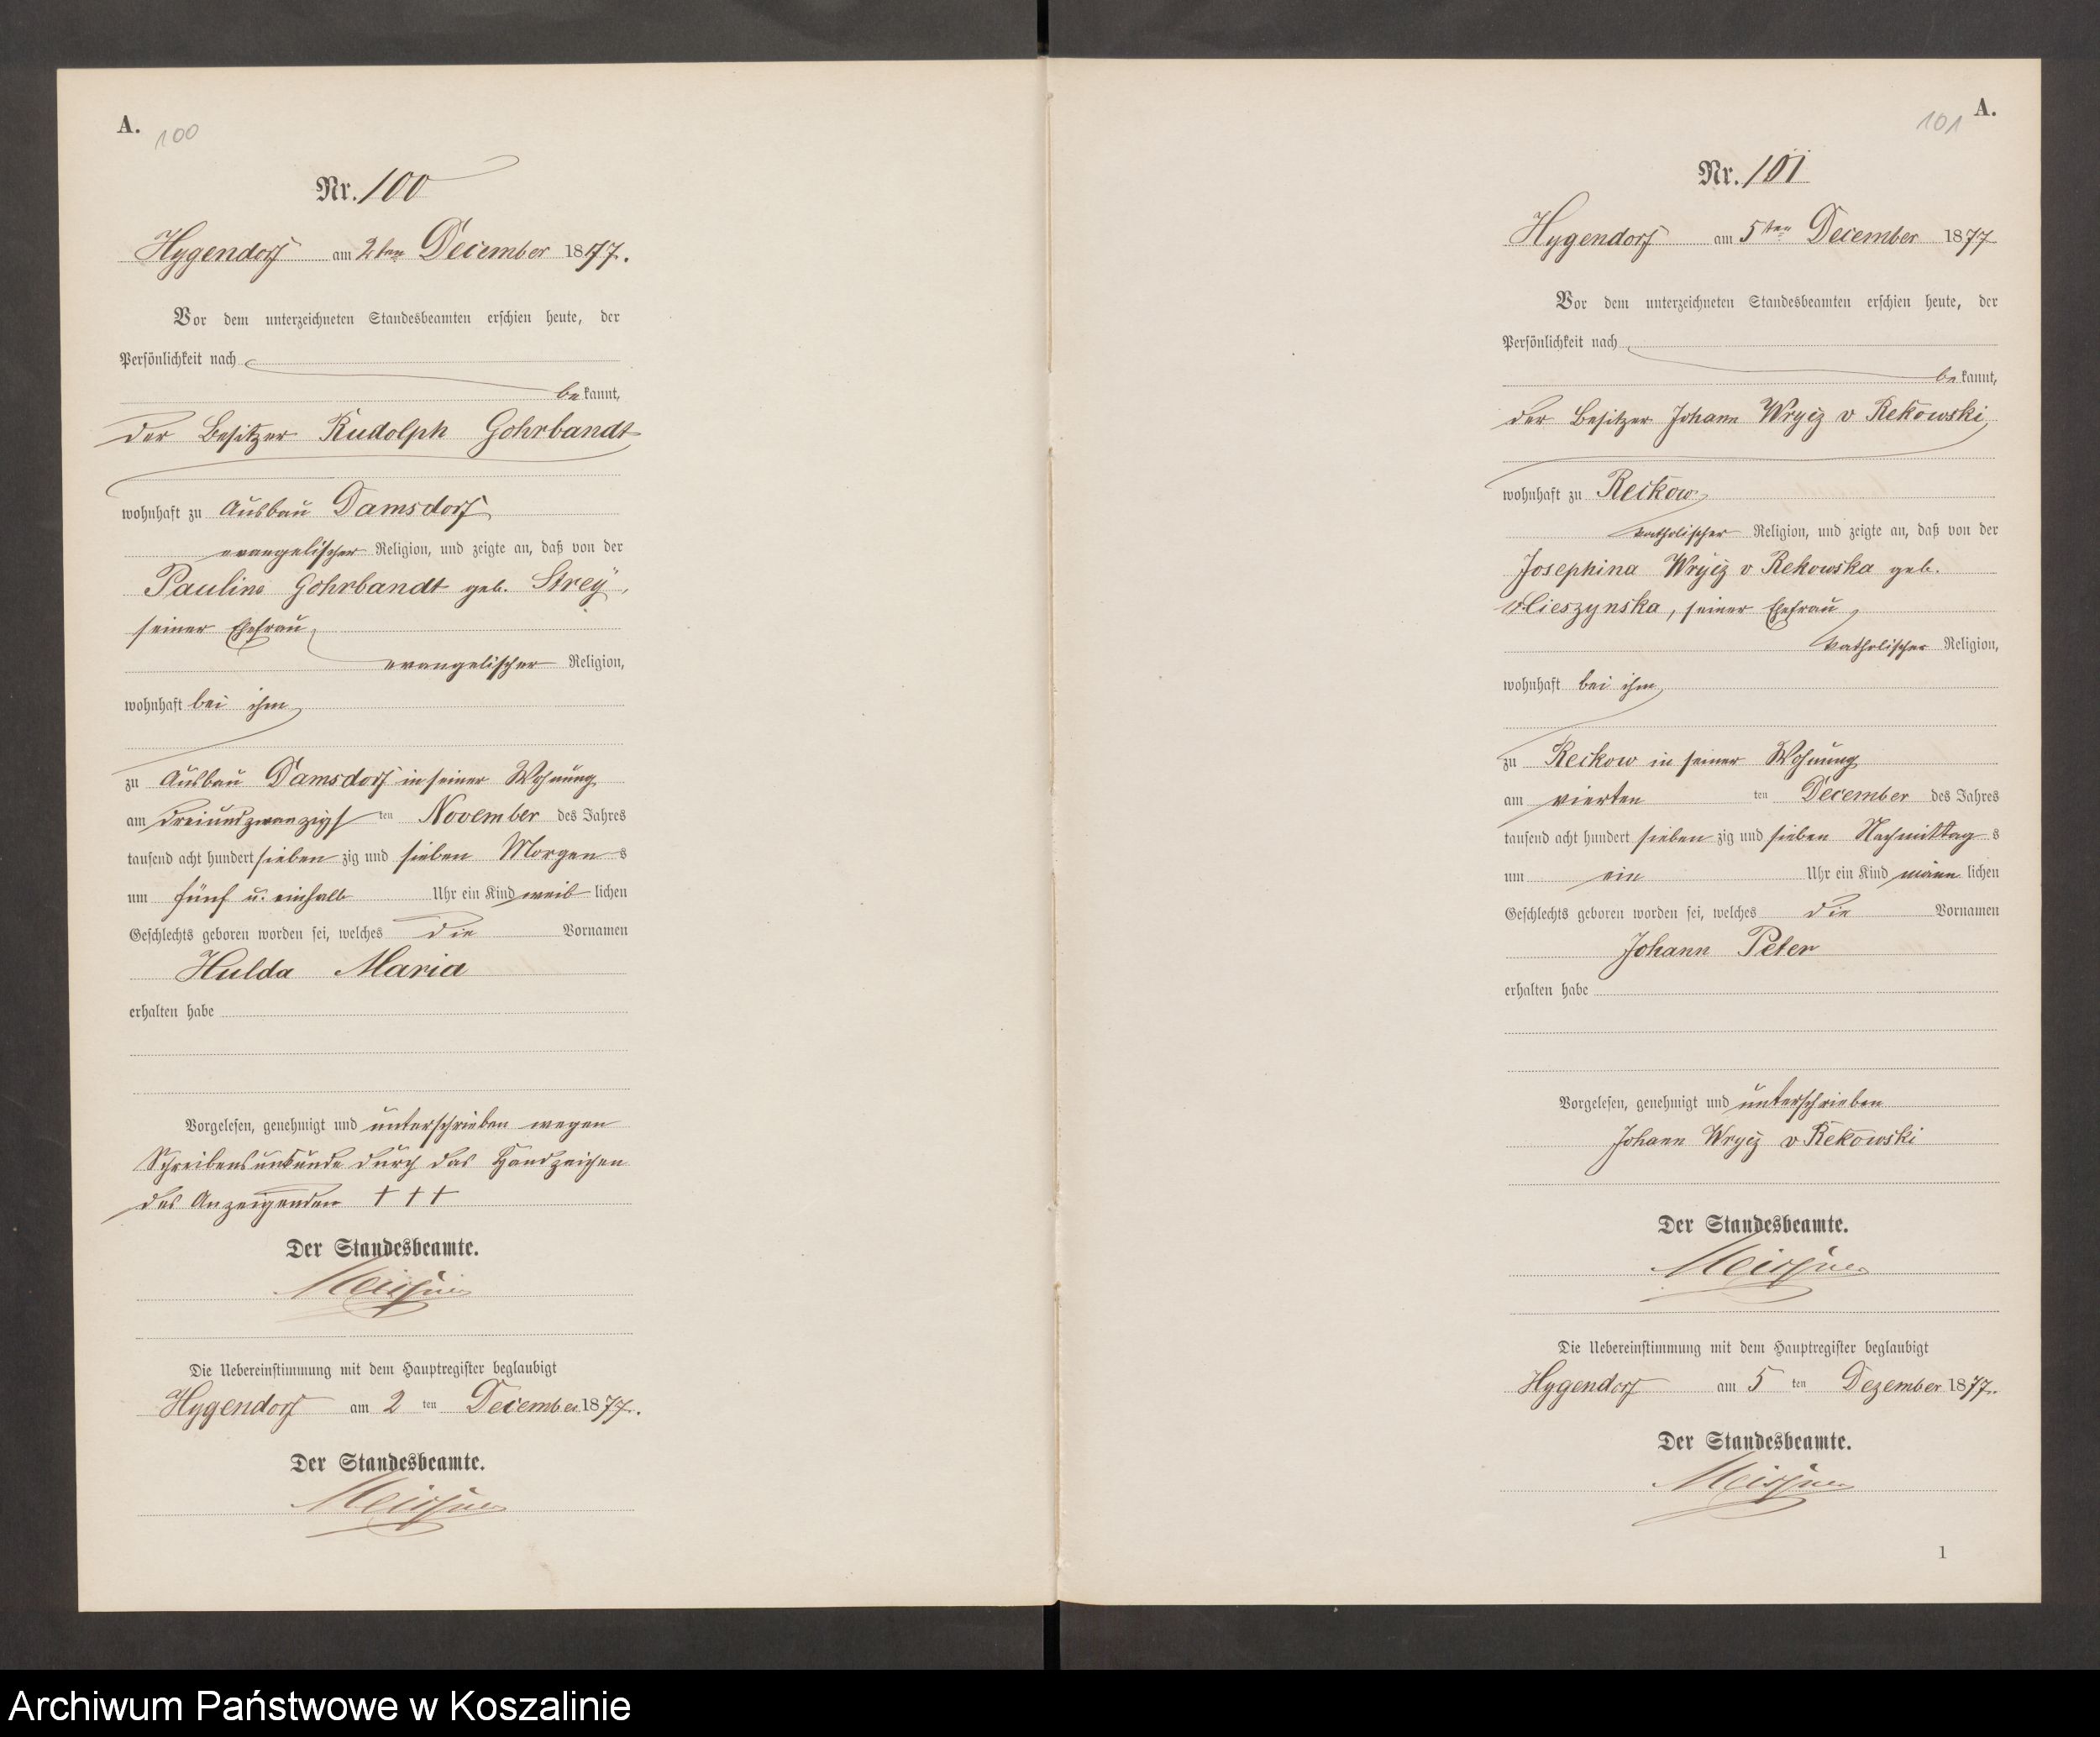 A.
100
Nr. 100
Hygendorf am 2ten December 1877.
Vor dem unterzeichneten Standesbeamten erschien heute, der
Persönlichkeit nach
bekannt,
der Besitzer Rudolph Gohrbandt
wohnhaft zu Ausbau Damsdorf
evangelischer Religion, und zeigte an, daß von der
Pauline Gohrbandt geb. Strey,
seiner Ehefrau,
evangelischer Religion,
wohnhaft bei ihm,
zu Ausbau Damsdorf in seiner Wohnung
am dreiundzwanzigsten November des Jahres
tausend acht hundert siebenzig und sieben Morgens
um fünf u. einhalb Uhr ein Kind weiblichen
Geschlechts geboren worden sei, welches die Vornamen
Hulda Maria
erhalten habe
Vorgelesen, genehmigt und unterschrieben wegen
Schreibensunkunde durch das Handzeichen
des Anzeigenden + + +
Der Standesbeamte.
Die Uebereinstimmung mit dem Hauptregister beglaubigt
Hygendorf am 2 ten December 1877.
Der Standesbeamte.
101
A.
Nr. 101
Hygendorf am 5ten December 1877
Vor dem unterzeichneten Standesbeamten erschien heute, der
Persönlichkeit nach
bekannt,
der Besitzer Johann Wrycz v Rekowski,
wohnhaft zu Reckow,
katholischer Religion, und zeigte an, daß von der
Josephina Wrycz v Rekowska geb.
seiner Ehefrau,
katholischer Religion,
wohnhaft bei ihm,
zu Reckow in seiner Wohnung
am vierten ten December des Jahres
tausend acht hundert siebenzig und sieben Nachmittags
um ein Uhr ein Kind männlichen
Geschlechts geboren worden sei, welches die Vornamen
Johann Peter
erhalten habe
Vorgelesen, genehmigt und unterschrieben
Johann Wrycz v Rekowski
Der Standesbeamte.
Die Uebereinstimmung mit dem Hauptregister beglaubigt
Hygendorf am 5 ten Dezember 1877.
Der Standesbeamte.
1
Archiwum Państwowe w Koszalinie